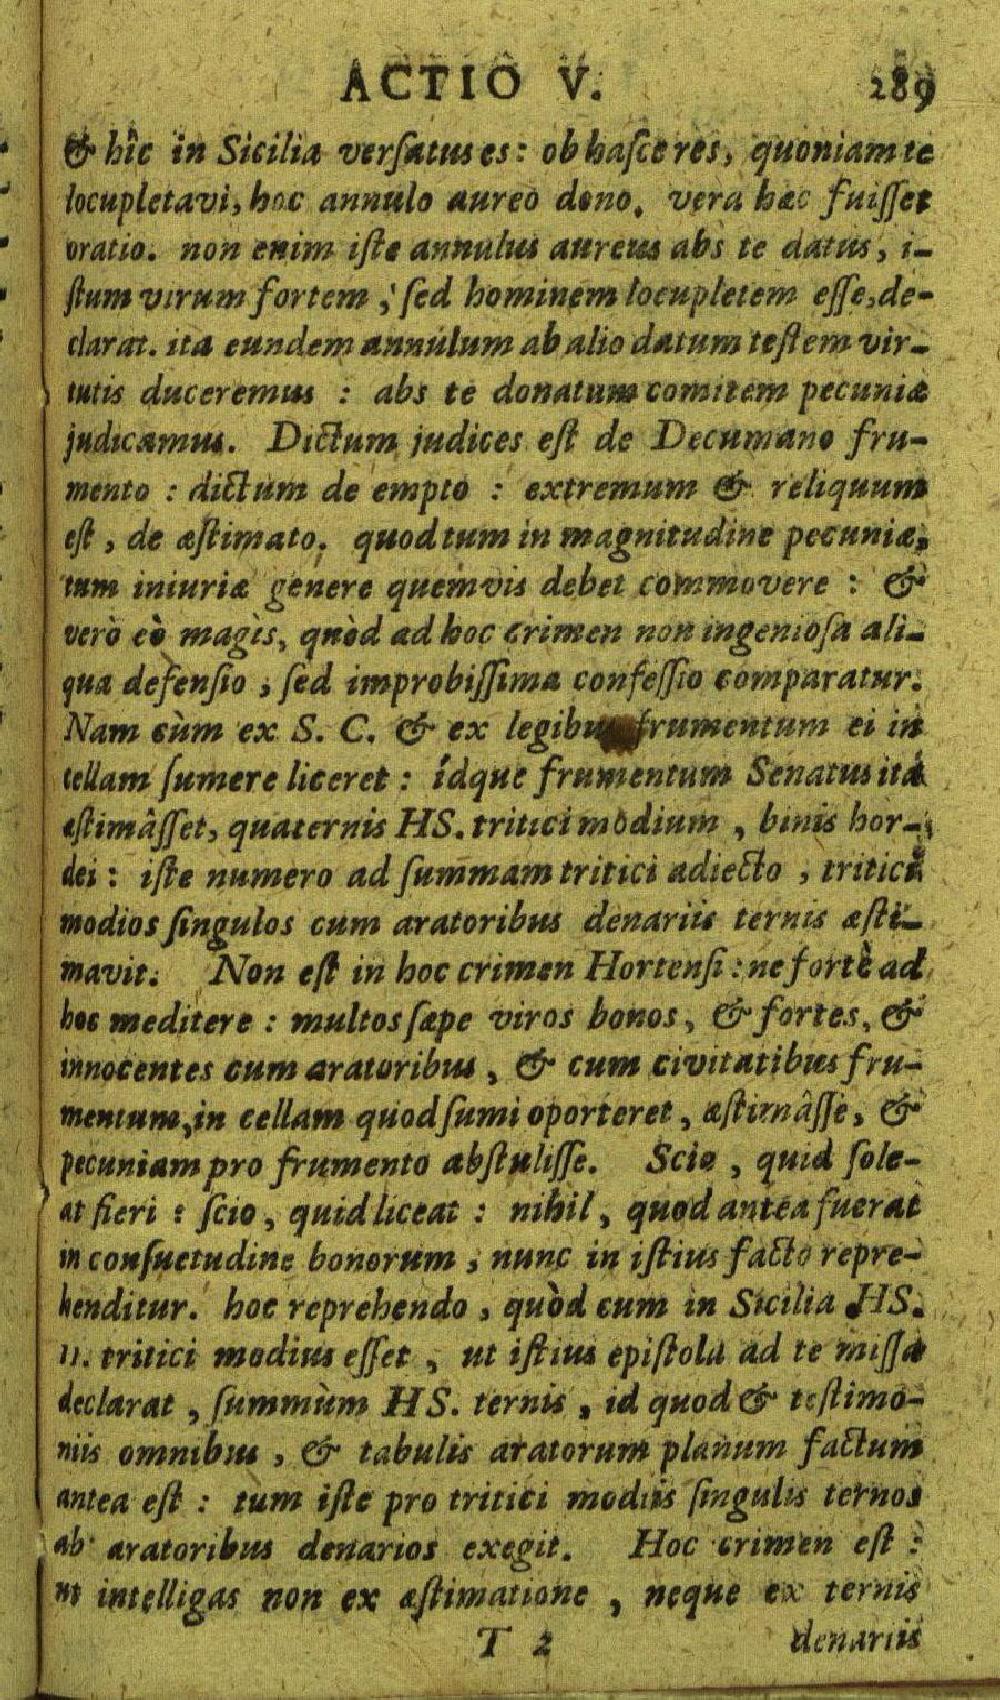 ACTIO V. 289
& hîc in Sicilia versatus es: ob hasce res, quoniam te
locupletavi, hoc annulo aureo dono. vera hæc fuisset
oratio. non enim iste annulus aureus abs te datus, i-
stum virum fortem, sed hominem locupletem esse, de-
clarat. ita eundem annulum ab alio datum testem vir-
tutis duceremus : abs te donatum comitem pecuniæ
judicamus. Dictum judices est de Decumano fru-
mento : dictum de empto : extremum & reliquum
est, de æstimato. quod tum in magnitudine pecuniæ,
tum iniuriæ genere quemvis debet commovere : &
verò eò magìs, quòd ad hoc crimen non ingeniosa ali-
qua defensio, sed improbissima confessio comparatur.
Nam cùm ex S. C. & ex legibus frumentum ei in
cellam sumere liceret : ídque frumentum Senatus ita
æstimâsset, quaternis HS. tritici modium, binis hor-
dei : iste numero ad summam tritici adiecto, tritici
modios singulos cum aratoribus denariis ternis æsti-
mavit. Non est in hoc crimen Hortensi : ne fortè ad
hoc meditere : multos sæpe viros bonos, & fortes, &
innocentes cum aratoribus, & cum civitatibus fru-
mentum, in cellam quod sumi oporteret, æstimâsse, &
pecuniam pro frumento abstulisse. Scio, quid sole-
at fieri : scio, quid liceat : nihil, quod antea fuerat
in consuetudine bonorum, nunc in istius facto repre-
henditur. hoc reprehendo, quòd cum in Sicilia HS.
II. tritici modius esset, ut istius epistola ad te missa
declarat, summùm HS. ternis, id quod & testimo-
niis omnibus, & tabulis aratorum planum factum
antea est : tum iste pro tritici modiis singulis ternos
ab aratoribus denarios exegit. Hoc crimen est :
ut intelligas non ex æstimatione, neque ex ternis
T 2 denariis